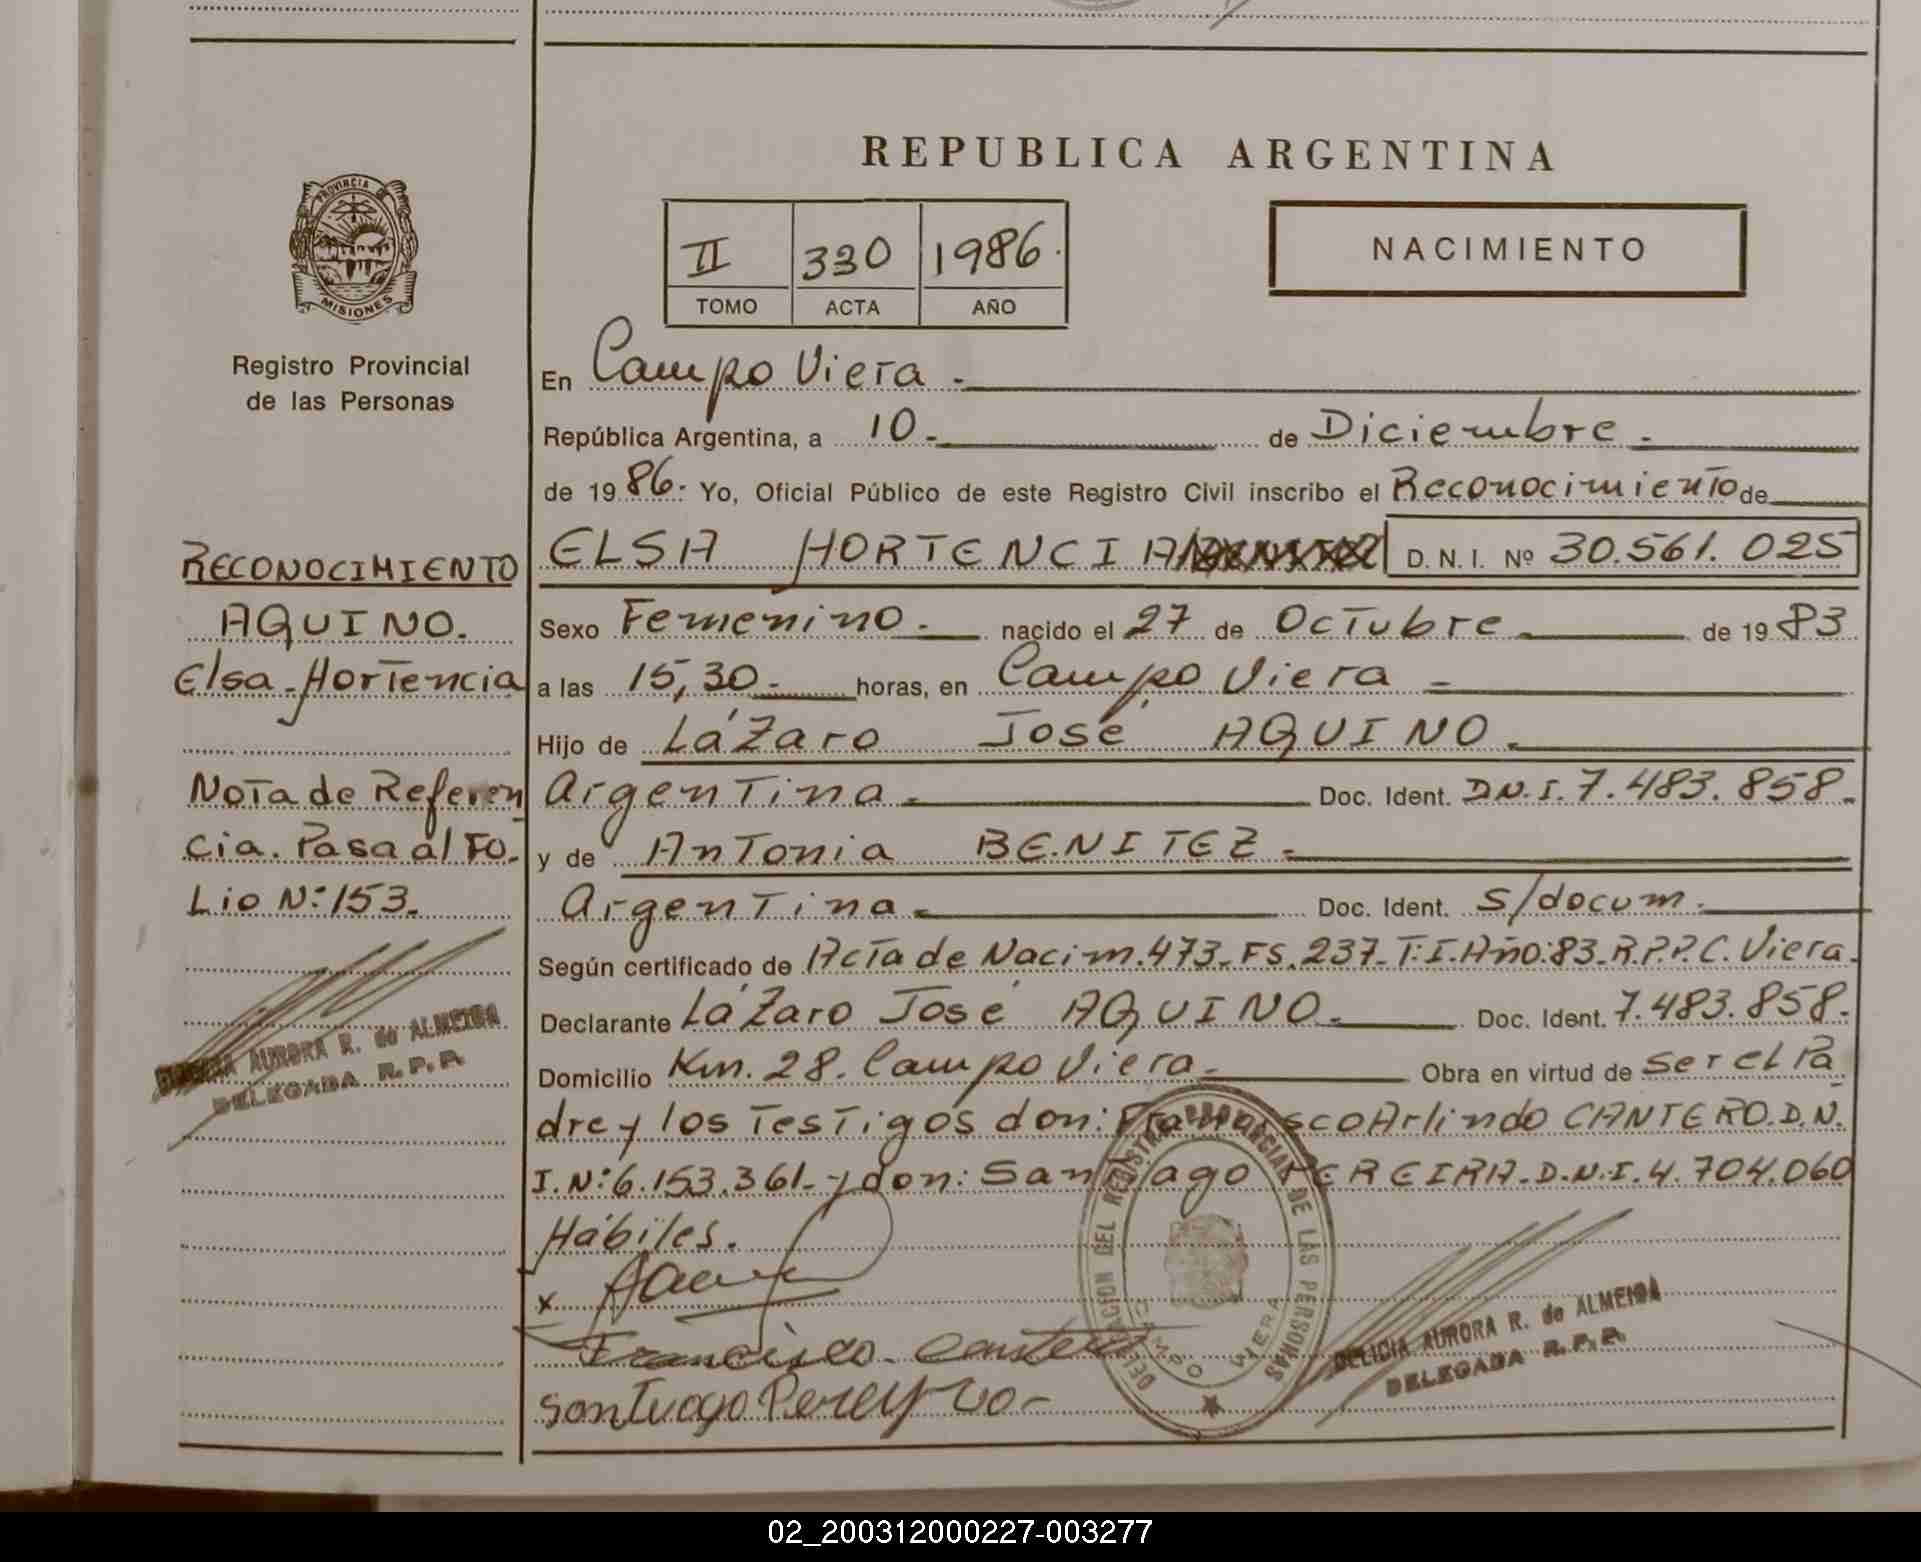 REPUBLICA ARGENTINA
II 330 1986.
TOMO ACTA AÑO
NACIMIENTO
PROVINCIA DE
MISIONES
Registro Provincial
de las Personas
En Campo Viera.-
República Argentina, a 10.- de Diciembre.-
de 1986.- Yo, Oficial Público de este Registro Civil inscribo el Reconocimiento de
ELSA HORTENCIA D. N. I. Nº 30.561.025
Sexo Femenino.- nacido el 27 de Octubre de 1983
a las 15,30.- horas, en Campo Viera -
Hijo de Lázaro José AQUINO.
Argentina.- Doc. Ident. D.N.I. 7.483.858.-
y de Antonia BENITEZ.-
Argentina.- Doc. Ident. s/docum.
Según certificado de Acta de Nacim. 473_FS.237_T:I.Año:83_R.P.P.C. Viera.
Declarante Lázaro José AQUINO.- Doc. Ident. 7.483.858.-
Domicilio Km. 28. Campo Viera.- Obra en virtud de ser el Pa-
dre y los Testigos don: Francisco Arlindo CANTERO.D.N.
I.N:6.153.361.- y don: Santiago PEREIRA.D.N.I.4.704.060
Hábiles.
x
Francisco. Cantero
DELEGACION DEL REGISTRO PROVINCIAL DE LAS PERSONAS
CAMPO VIERA
DELICIA AURORA R. de ALMEIDA
DELEGADA R. P. P.
RECONOCIMIENTO
AQUINO.
Elsa Hortencia
Nota de Referen
cia. Pasa al Fo-
Lio N:153.
AURORA R. de ALMEIDA
DELEGADA R. P. P.
02_200312000227-003277